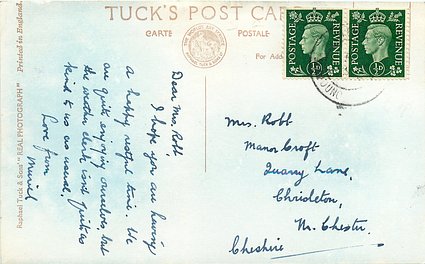 TUCK'S POST CARD
CARTE POSTALE
For Add
POSTAGE REVENUE
½D
POSTAGE REVENUE
½D
Dear Mrs. Robb,
I hope you are having
a happy restful time. We
are quite enjoying ourselves, but
the weather clerk isnt quite as
kind to us as usual.
Love from
Muriel
Mrs. Robb
Manor Croft
Quarry Lane,
Christleton,
Nr. Chester.
Cheshire
Raphael Tuck & Sons' "REAL PHOTOGRAPH" Printed in England.